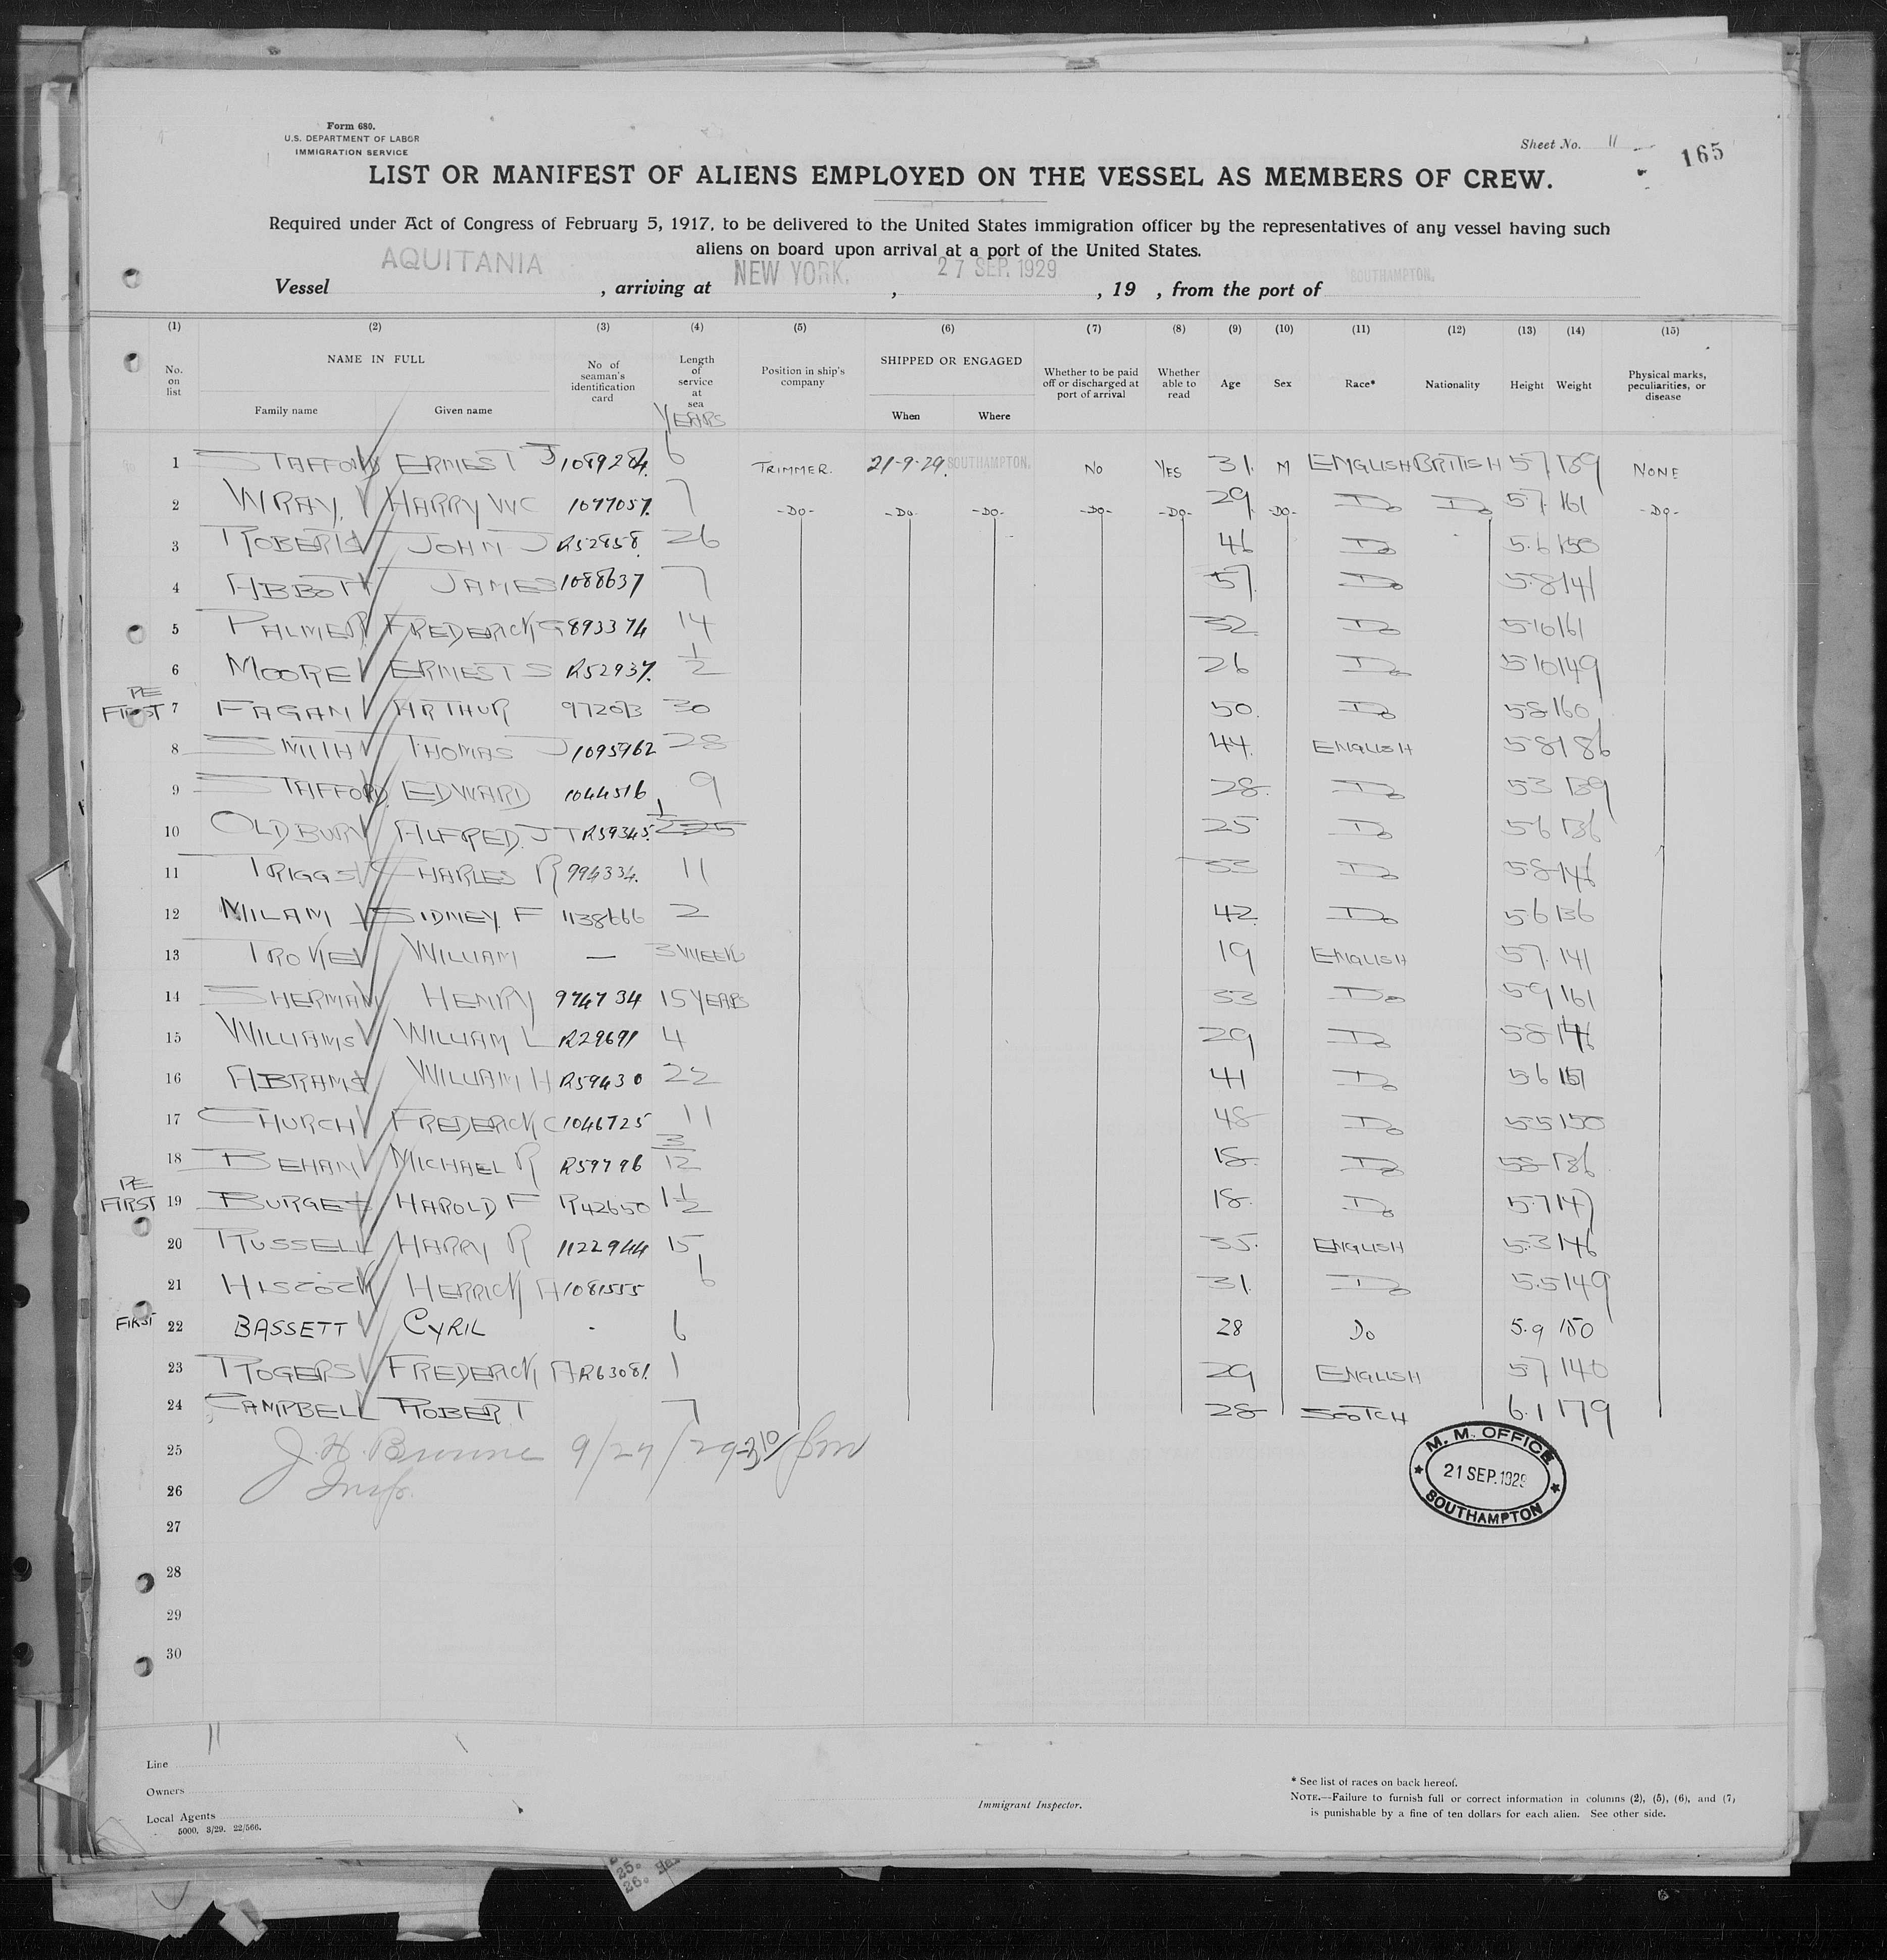 Form 680.
U.S. DEPARTMENT OF LABOR
IMMIGRATION SERVICE
Sheet No. 11
165
LIST OR MANIFEST OF ALIENS EMPLOYED ON THE VESSEL AS MEMBERS OF CREW.
Required under Act of Congress of February 5, 1917, to be delivered to the United States immigration officer by the representatives of any vessel having such
aliens on board upon arrival at a port of the United States.
Vessel AQUITANIA, arriving at NEW YORK, 27 SEP. 1929, 19 , from the port of SOUTHAMPTON.
(1) (2) (3) (4) (5) (6) (7) (8) (9) (10) (11) (12) (13) (14) (15)
No. on list
NAME IN FULL
Family name Given name
No of seaman's identification card
Length of service at sea
YEARS
Position in ship's company
SHIPPED OR ENGAGED
When Where
Whether to be paid off or discharged at port of arrival
Whether able to read
Age Sex Race* Nationality Height Weight
Physical marks, peculiarities, or disease
1 STAFFORD ERNEST J 1089284. 6 TRIMMER. 21-9-29. SOUTHAMPTON. NO YES 31. M ENGLISH BRITISH 5.7 139 NONE
2 WRAY. HARRY WC 1077057. 7 -DO- -DO- -DO- -DO- -DO- 29. -DO- DO DO 5.7. 161 -DO-
3 ROBERTS JOHN J R52858. 26 46 DO 5.6 150
4 ABBOTT JAMES 1088637 7 57. DO 5.8 141
5 PALMER FREDERICK G 893374 14 32 DO 5.10 161
6 MOORE ERNEST S R52937. 1/2 26 DO 5.10 149
PE FIRST 7 FAGAN ARTHUR 30 50. DO 5.8 160
8 SMITH THOMAS J 1095962 28 44. ENGLISH 5.8 186
9 STAFFORD EDWARD 1044516 9 28. DO 5.3 139
10 OLDBURY ALFRED. J T R59345. 1/2 25 DO 5.6 136
11 TRIGGS CHARLES R 994334. 11 33 DO 5.8 146
12 MILAM SIDNEY. F 1138666 2 42 DO 5.6 136
13 WILLIAM — 3 WEEKS 19 ENGLISH 5.7. 141
14 SHERMAN HENRY 974734 15 YEARS 33 DO 5.9 161
15 WILLIAMS WILLIAM L R29691 4 29 DO 5.8
16 ABRAMS WILLIAM H R59430 22 41 DO 5.6
17 CHURCH FREDERICK C 1046725 11 48 DO 5.5 150
18 BEHAN MICHAEL R R59796 3/12 18. DO 5.8 136
PE FIRST 19 BURGESS HAROLD F R42650 1 1/2 18. DO 5.7 147
20 RUSSELL HARRY R 1122944 15 35. ENGLISH 5.3 146
21 HISCOCK HERRICK A 1081555 6 31. DO 5.5 149
FIRST 22 BASSETT CYRIL - 6 28 DO 5.9 150
23 ROGERS FREDERICK A R63081. 1 29 ENGLISH 5.7 140
24 CAMPBELL ROBERT 7 28 SCOTCH 6.1 179
25 J. H. Browne 9/27/29 310/pm
26 Insp.
27
28
29
30
M. M. OFFICE
21 SEP. 1929
SOUTHAMPTON
11
Line
Owners
Local Agents
5000, 3/29. 22/566.
Immigrant Inspector.
* See list of races on back hereof.
NOTE.—Failure to furnish full or correct information in columns (2), (5), (6), and (7)
is punishable by a fine of ten dollars for each alien. See other side.
25.
26.